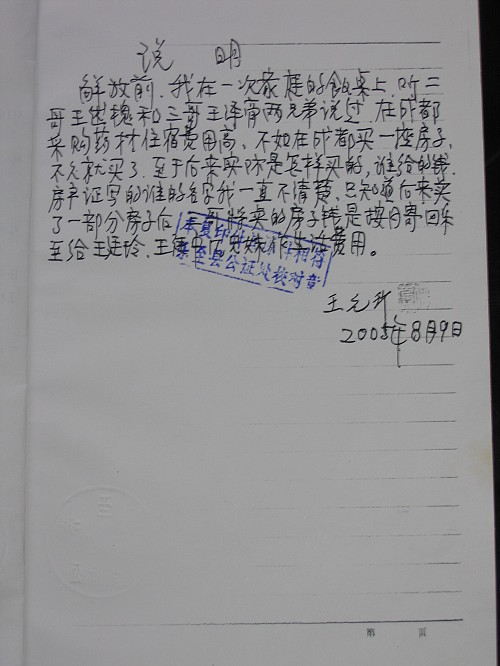 说 明
解放前，我在一次家庭的饭桌上，听二
哥王世槐和三哥王泽甫两兄弟说过，在成都
采购药材住宿费用高，不如在成都买一座房子，
不久就买了，至于后来实际是怎样买的，谁给的钱
房产证写的谁的名字我一直不清楚，只知道后来卖
了一部分房子后，三哥将卖的房子钱是按月寄回乐
至给王廷玲、王德 费用。
本复印件 原件相符
乐至县公证处校对章
王允
2005年8月9日
第 页